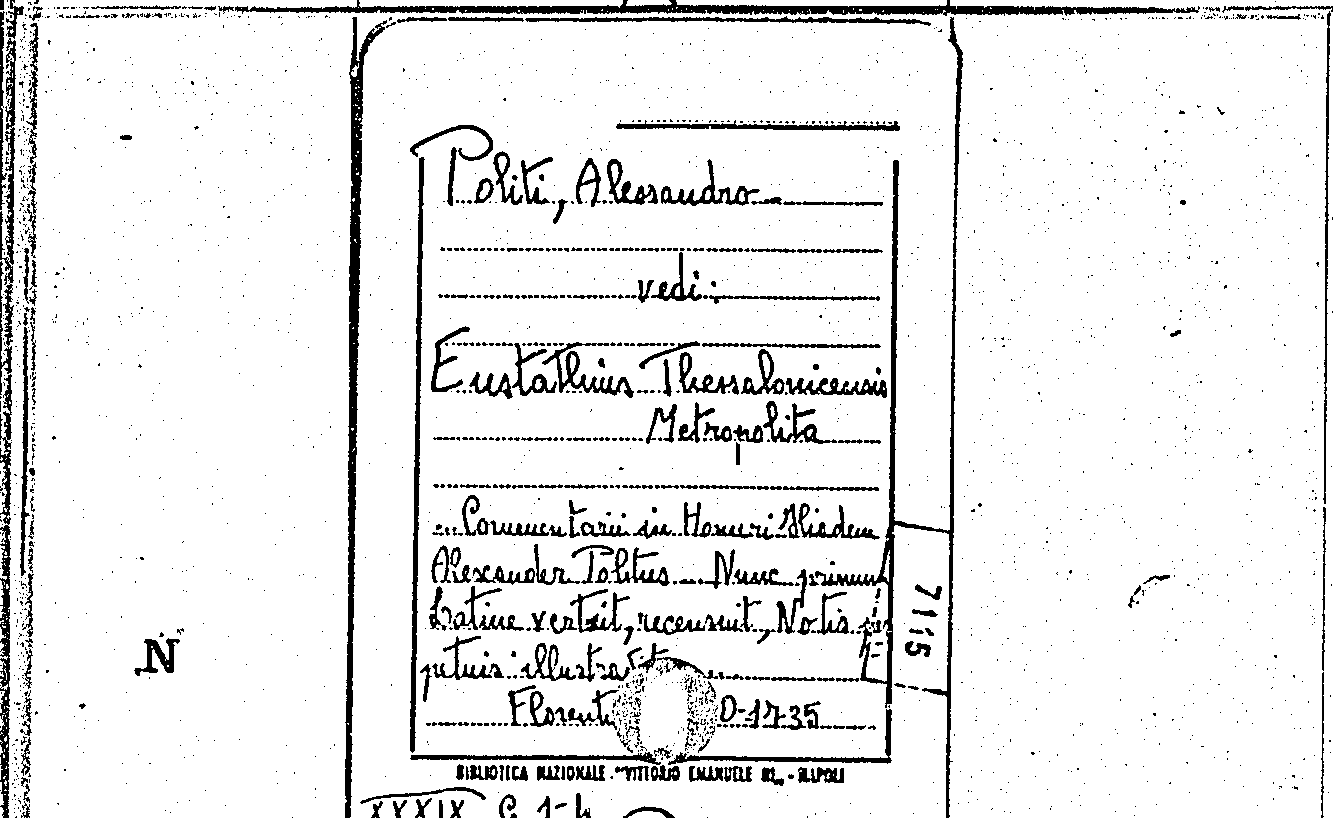 Politi, Alessandro
vedi:
Eustathius Thessalonicensis
Metropolita
... Commentarii in Homeri Iliadem
Alexander Politus ... Nunc primum
Latine vertit, recensuit, Notis per
petuis illustravit ...
Florenti 0-1735
7115
N
BIBLIOTECA NAZIONALE "VITTORIO EMANUELE III" - NAPOLI
XXXIX C 1-4